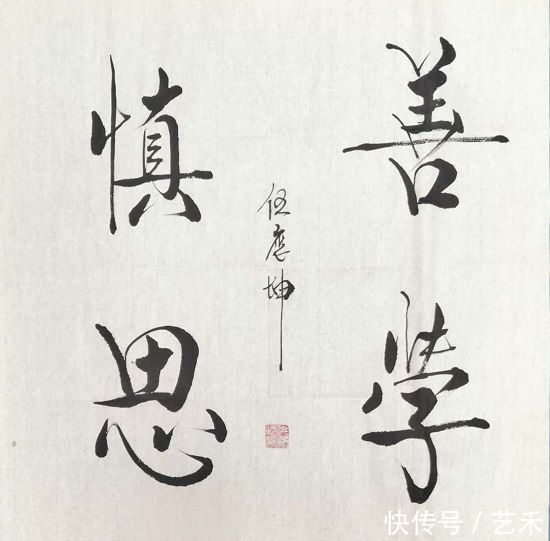 善學
慎思
伍應坤
快传号 / 艺禾